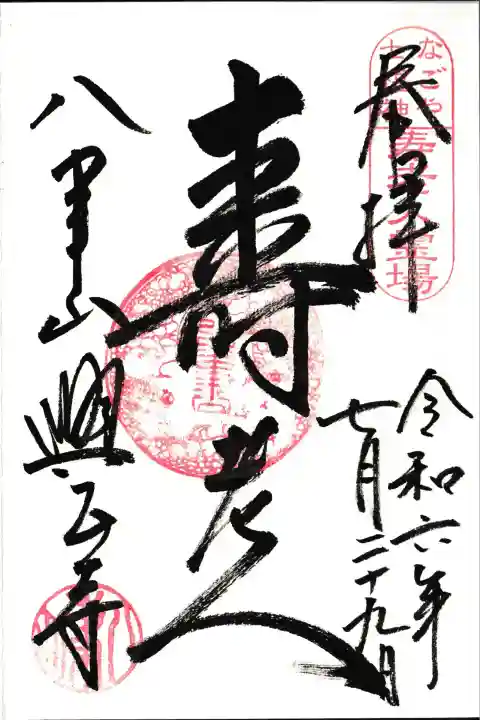 奉拝
なごや七福神
寿老人霊場
令和六年
七月二十九日
寿老人
八事山興正寺